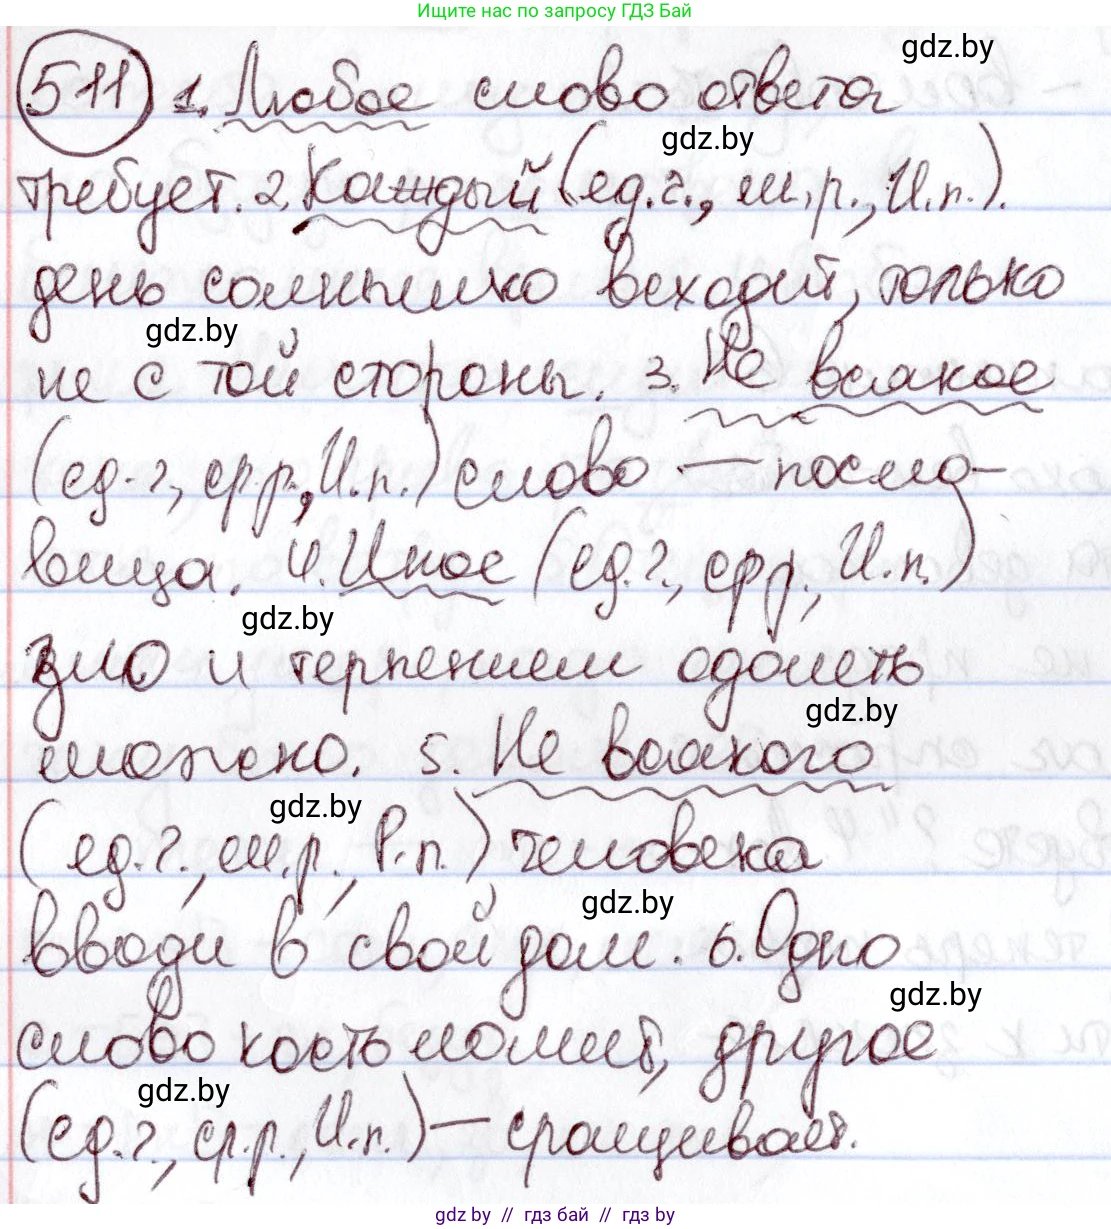 Ищите нас по запросу ГДЗ Бай
gdz.by
511 1. Любое слово ответа
gdz.by
требует. 2. Каждый (ед.ч., м.р., И.п.).
день солнышко всходит, только
gdz.by
не с той стороны. 3. Не всякое
(ед.ч., ср.р., И.п.) слово — посло-
вица. 4. Иное (ед.ч., ср.р., И.п.)
gdz.by
зло и терпением одолеть
gdz.by
можно. 5. Не всякого
gdz.by
(ед.ч., м.р., Р.п.) человека
gdz.by
вводи в свой дом. 6. Одно
gdz.by
слово кость ломит, другое
gdz.by
(ед.ч., ср.р., И.п.) — сращивает.
gdz.by // гдз бай // гдз by